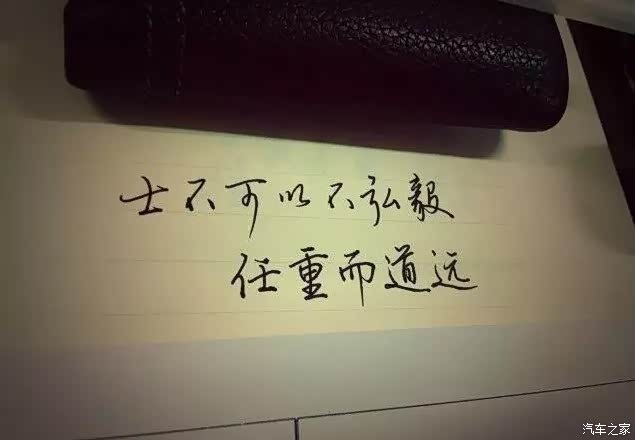 士不可以不弘毅
任重而道远
汽车之家